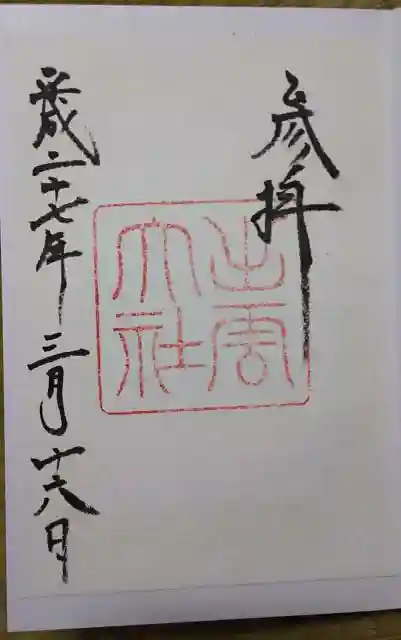 参拝
出雲
大社
平成二十七年三月十六日